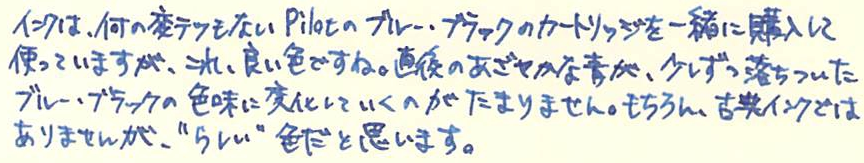 インクは、何の変テツもない Pilotの ブルー・ブラックのカートリッジを一緒に購入して
使っていますが、これ、良い色ですね。直後のあざやかな青が、少しずつ落ちついた
ブルー・ブラックの色味に変化していくのがたまりません。もちろん、古典インクでは
ありませんが、"らしい" 色だと思います。